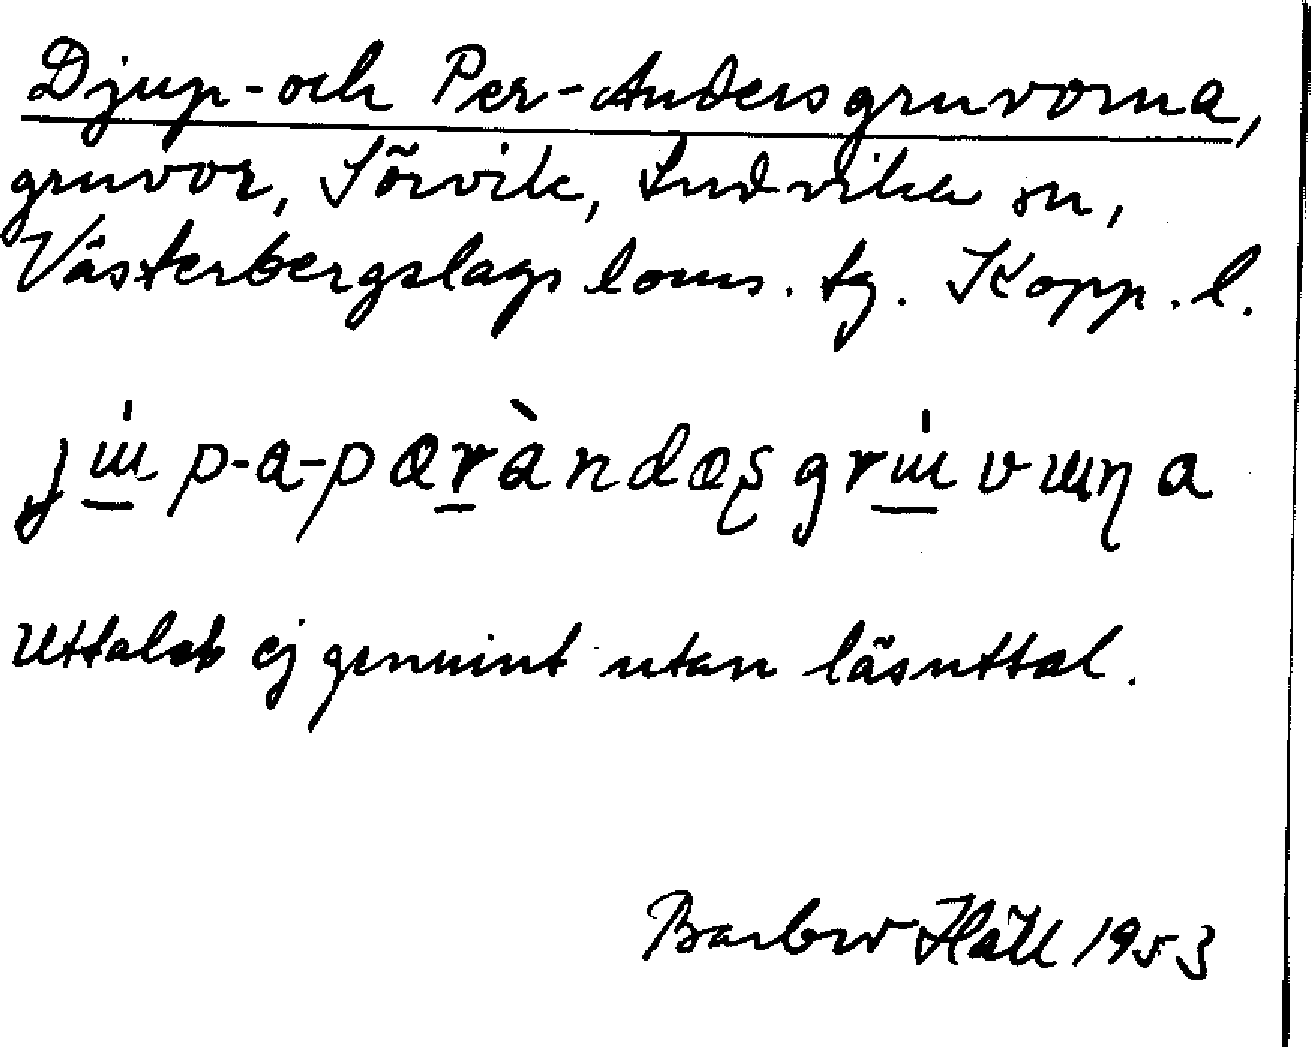 Djup- och Per-Andersgruvorna,
gruvor, Sörvik, Ludvika sn,
Västerbergslags doms. tg. Kopp. l.
jɯ́p-a-pæràndæʂgrɯ́vɯɳa
Uttalet ej genuint utan läsuttal.
Barbro Häll 1953